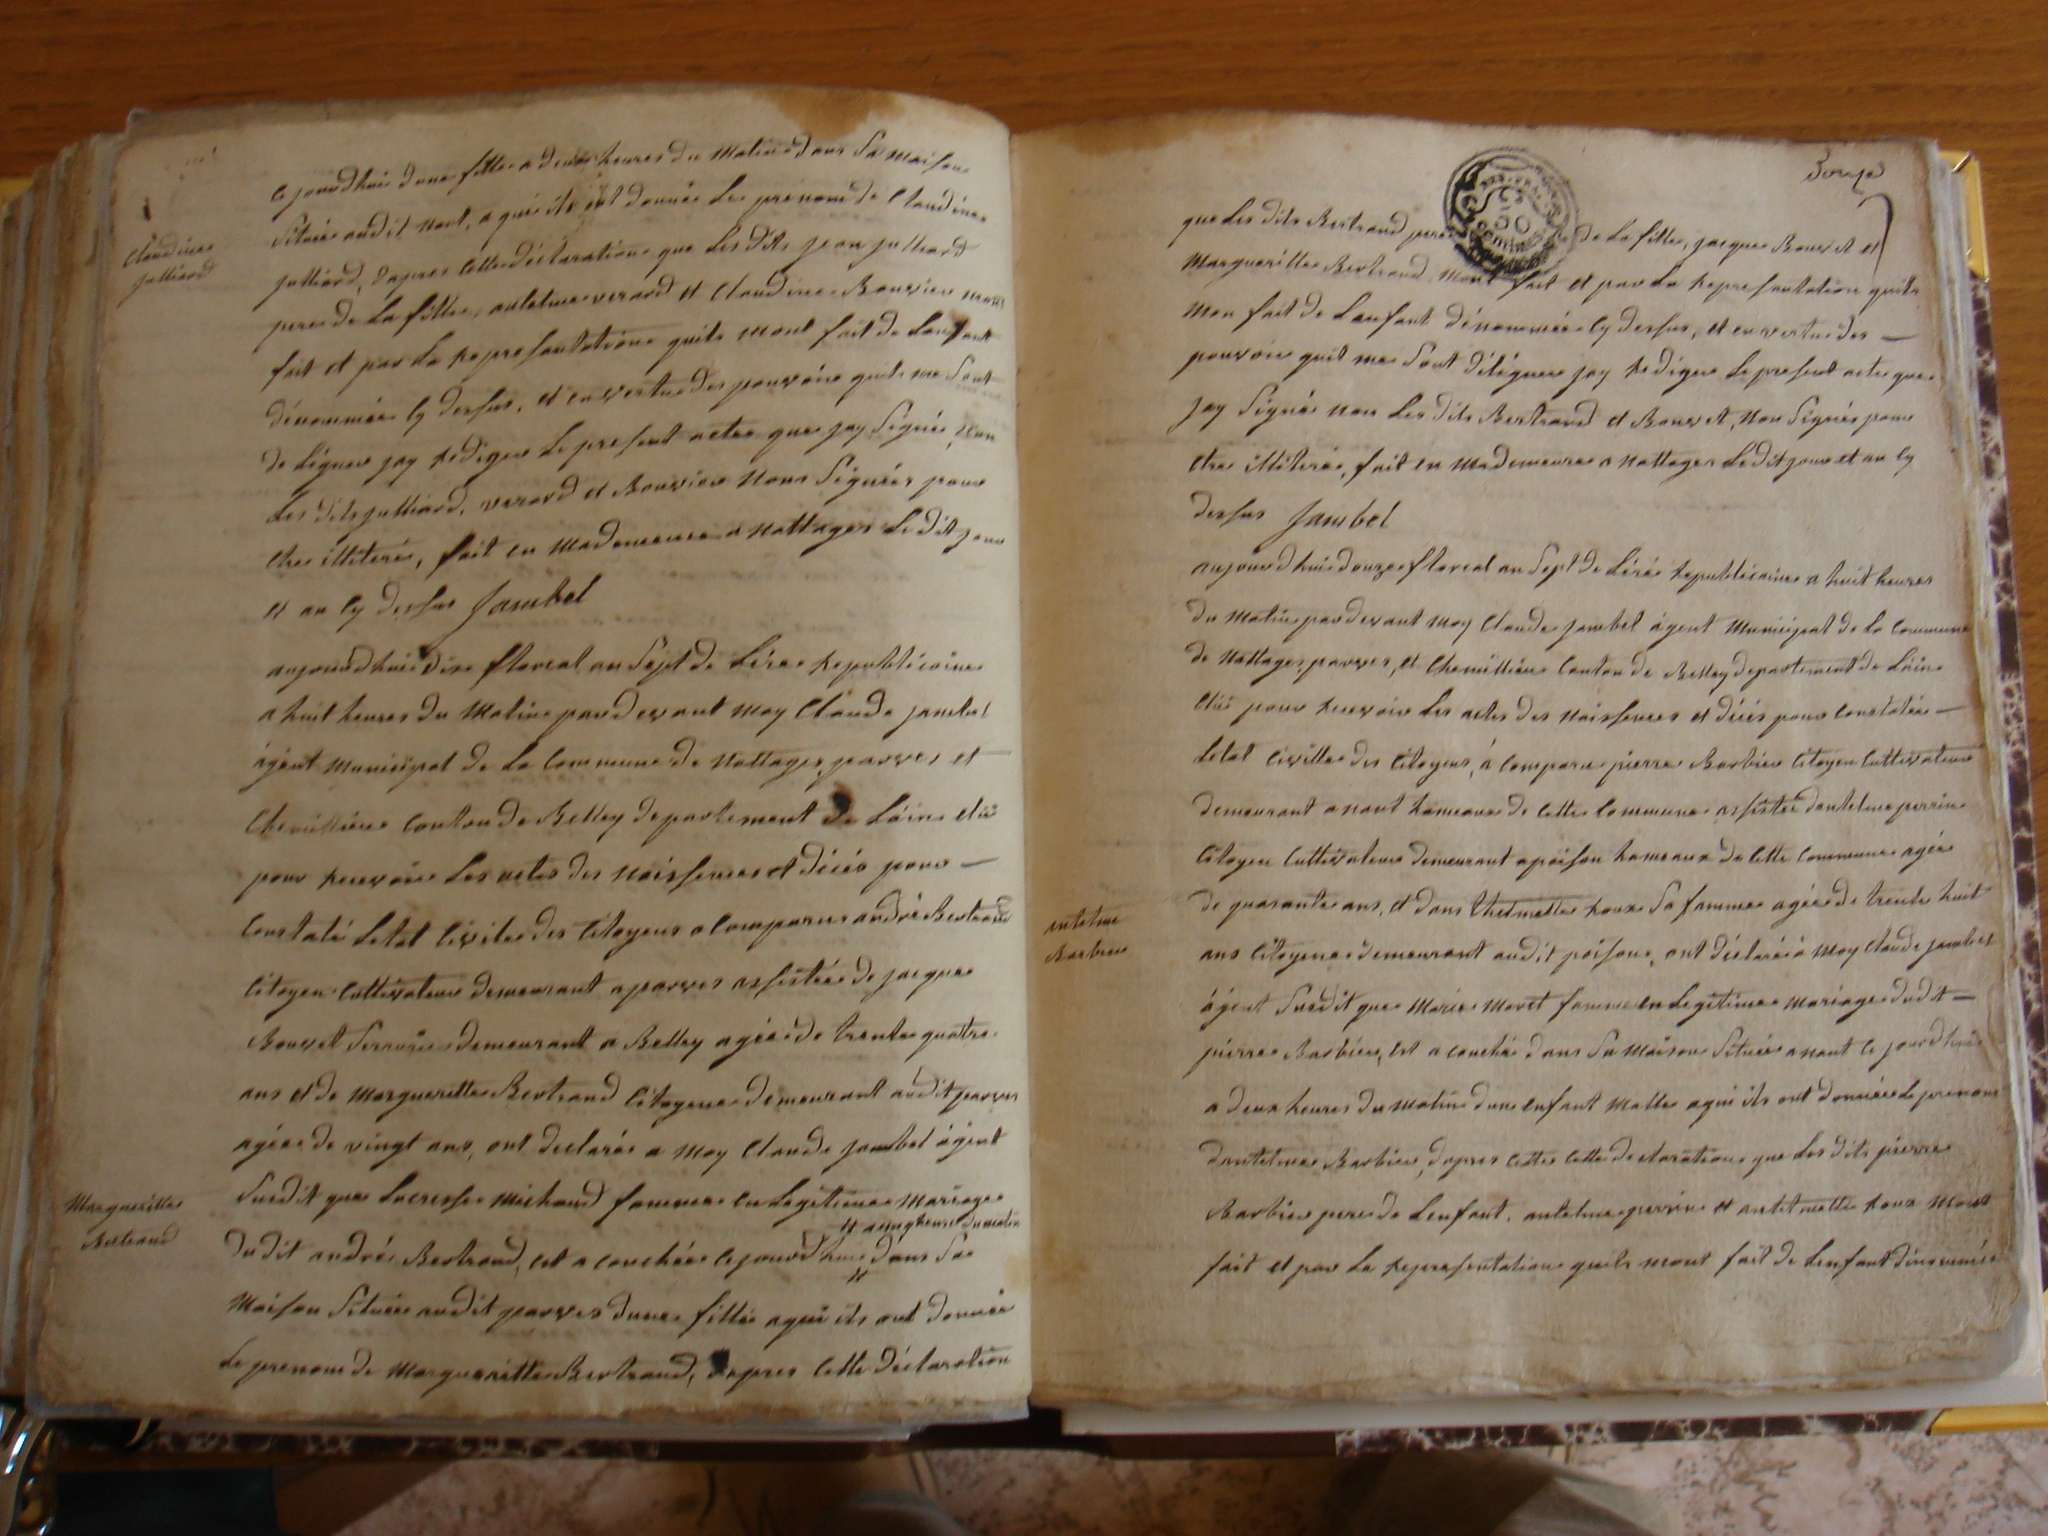 Claudine
julliard
ce jourdhui dune fille a deux heures du Matin dans Sa Maison
Située audit nant, a qui ils ont donnée Le prenom de Claudine
julliard, dapres Cette déclaration que Les dits jean julliard
pere de La fille, antelme verard et Claudine Bouvier mont
fait et par La Representation quils mont fait de Lenfant
dénommée Cy dessus, et en vertu des pouvoirs quils me Sont
de Légués jay Rediger Le present acte que jay Signé, non
Les dits julliard, verard et Bouvier Nons Signés pour
Etre illiterés, fait en Mademeure a Nattages Le dit jour
et an Cy dessus Jambel
aujourdhui dix floreal an Sept de Lére Republicaine
a huit heures du Matin pardevant moy Claude jambel
ágént Municipal de La Commune de Nattages, parves et
Chemillieu Canton de Belley departement de Láin élú
pour Recevoir Les actes des Naissences et décés pour —
Constaté Létat Civile des Citoyens a Comparu andré Bertrand
Citoyen Cultivateur demeurant a parves assistée de jacque
Bouvet Serrurier demeurant a Belley agée de trente quatre
ans et de Margueritte Bertrand Citoyene demeurant audit parves
agée de vingt ans, ont declarée a Moy Claude jambel ágént
Margueritte
Bertrand
Susdit que Lucresse Michaud famme en Legitime Mariage
# a cinq heures du matin
du dit andré Bertrand, est a couchée ce jourdhui # dans Sa
Maison Située audit parves dune fille a qui ils ont donnée
Le prenom de Margueritte Bertrand, dapres Cette déclaration
Douze
que Les dits Bertrand pere de La fille, jacque Bouvet et
Margueritte Bertrand mont fait et par La Representation quils
Mon fait de Lenfant dénommée Cy dessus, et en vertu des —
pouvoir quil me Sont délégués jay Rediger Le present acte que
jay Signé non Les dits Bertrand et Bouvet, Non Signés pour
Etre illiterée, fait en Mademeure a Nattages Ledit jour et an Cy
dessus Jambel
aujourdhui douze floreal an Sept de Léré Republicaine a huit heures
du Matin pardevant moy Claude jambel ágent Municipal de La Commune
de Nattages, parves, et Chemillieu Canton de Belley departement de Láin
élú pour Recevoir Les actes des Naissences et décés pour Constatée —
Letat Civille des Citoyens, á Comparu pierre Barbier Citoyen Cultivateur
demeurant a nant hameaux de Cette Commune assistée dantelme perrin
Citoyen Cultivateur demeurant a poison hameaux de Cette Commune agée
antelme
Barbier
de quarante ans, et dans Roux Sa famme agée de trente huit
ans Citoyene demeurant audit poison, ont déclaré á Moy Claude jambel
ágent Susdit que Marie Moret famme en Legitime Mariage du dit —
pierre Barbier, est a couchée dans Sa Maison Située a nant ce jourdhui
a deux heures du matin dun Enfant Malle a qui ils ont donnée Le prenom
dantelme Barbier, dapres cette Cette declaration que Les dits pierre
Barbier pere de Lenfant, antelme perrin et Roux Mont
fait et par La Representation quils mont fait de Lenfant dénommée